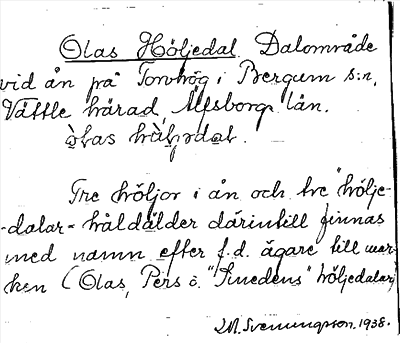 Olas Höljedal. Dalområde
vid ån på Torvhög i Bergum s:n,
Vättle härad, Älfsborgs län.
Tre höljor i ån och tre "hölje-
-dalar = håldälder därintill finnas
med namn efter f.d. ägare till mar-
ken (Olas, Pers o. "Smedens" höljedalar)
Svenungsson. 1938.